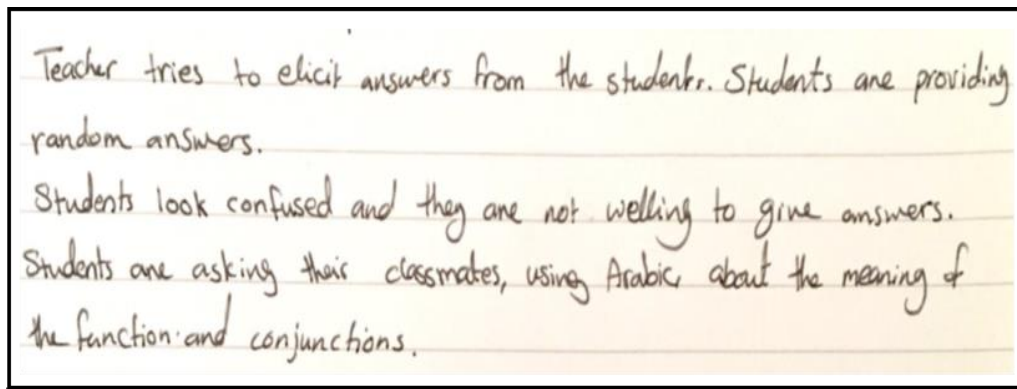 Teacher tries to elicit answers from the students. Students are providing
random answers.
Students look confused and they are not welling to give answers.
Students are asking their classmates, using Arabic, about the meaning of
the function and conjunctions.